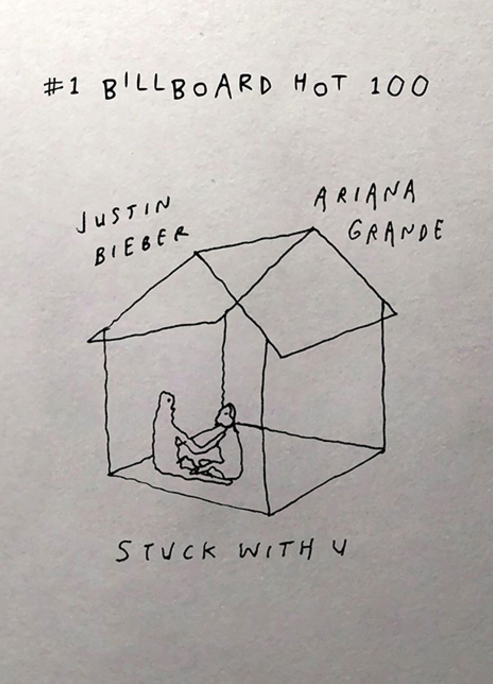 #1 BILLBOARD HOT 100
JUSTIN
BIEBER
ARIANA
GRANDE
STUCK WITH U